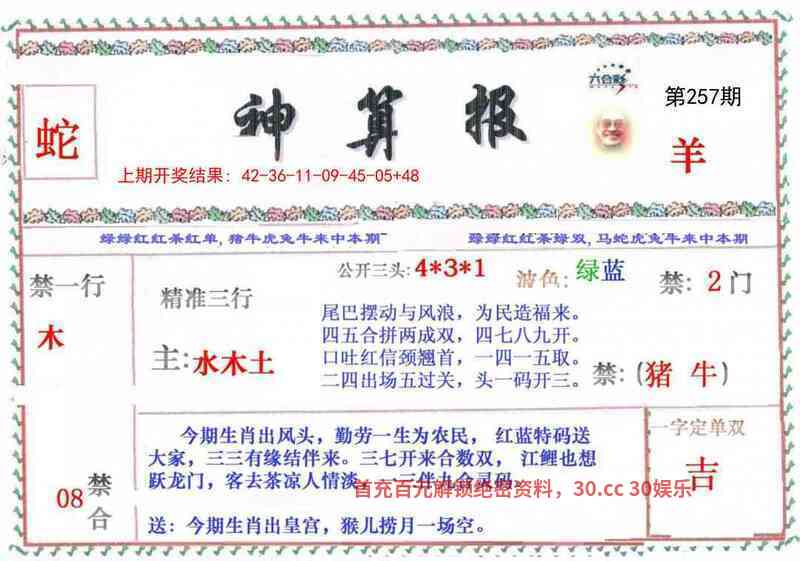 六合彩
第257期
蛇
神算报
羊
上期开奖结果: 42-36-11-09-45-05+48
绿绿红红条红单, 猪牛虎兔牛来中本期
绿绿红红条绿双, 马蛇虎兔牛来中本期
禁一行
木
精准三行
主: 水木土
公开三头: 4*3*1
波色: 绿蓝
禁: 2门
尾巴摆动与风浪，为民造福来。
四五合拼两成双，四七八九开。
口吐红信颈翘首，一四一五取。
二四出场五过关，头一码开三。
禁: (猪 牛)
08
禁合
今期生肖出风头，勤劳一生为农民， 红蓝特码送
大家，三三有缘结伴来。三七开来合数双，江鲤也想
跃龙门，客去茶凉人情淡。 三伴九合灵码。
首充百元解锁绝密资料，30.cc 30娱乐
送：今期生肖出皇宫，猴儿捞月一场空。
一字定单双
吉